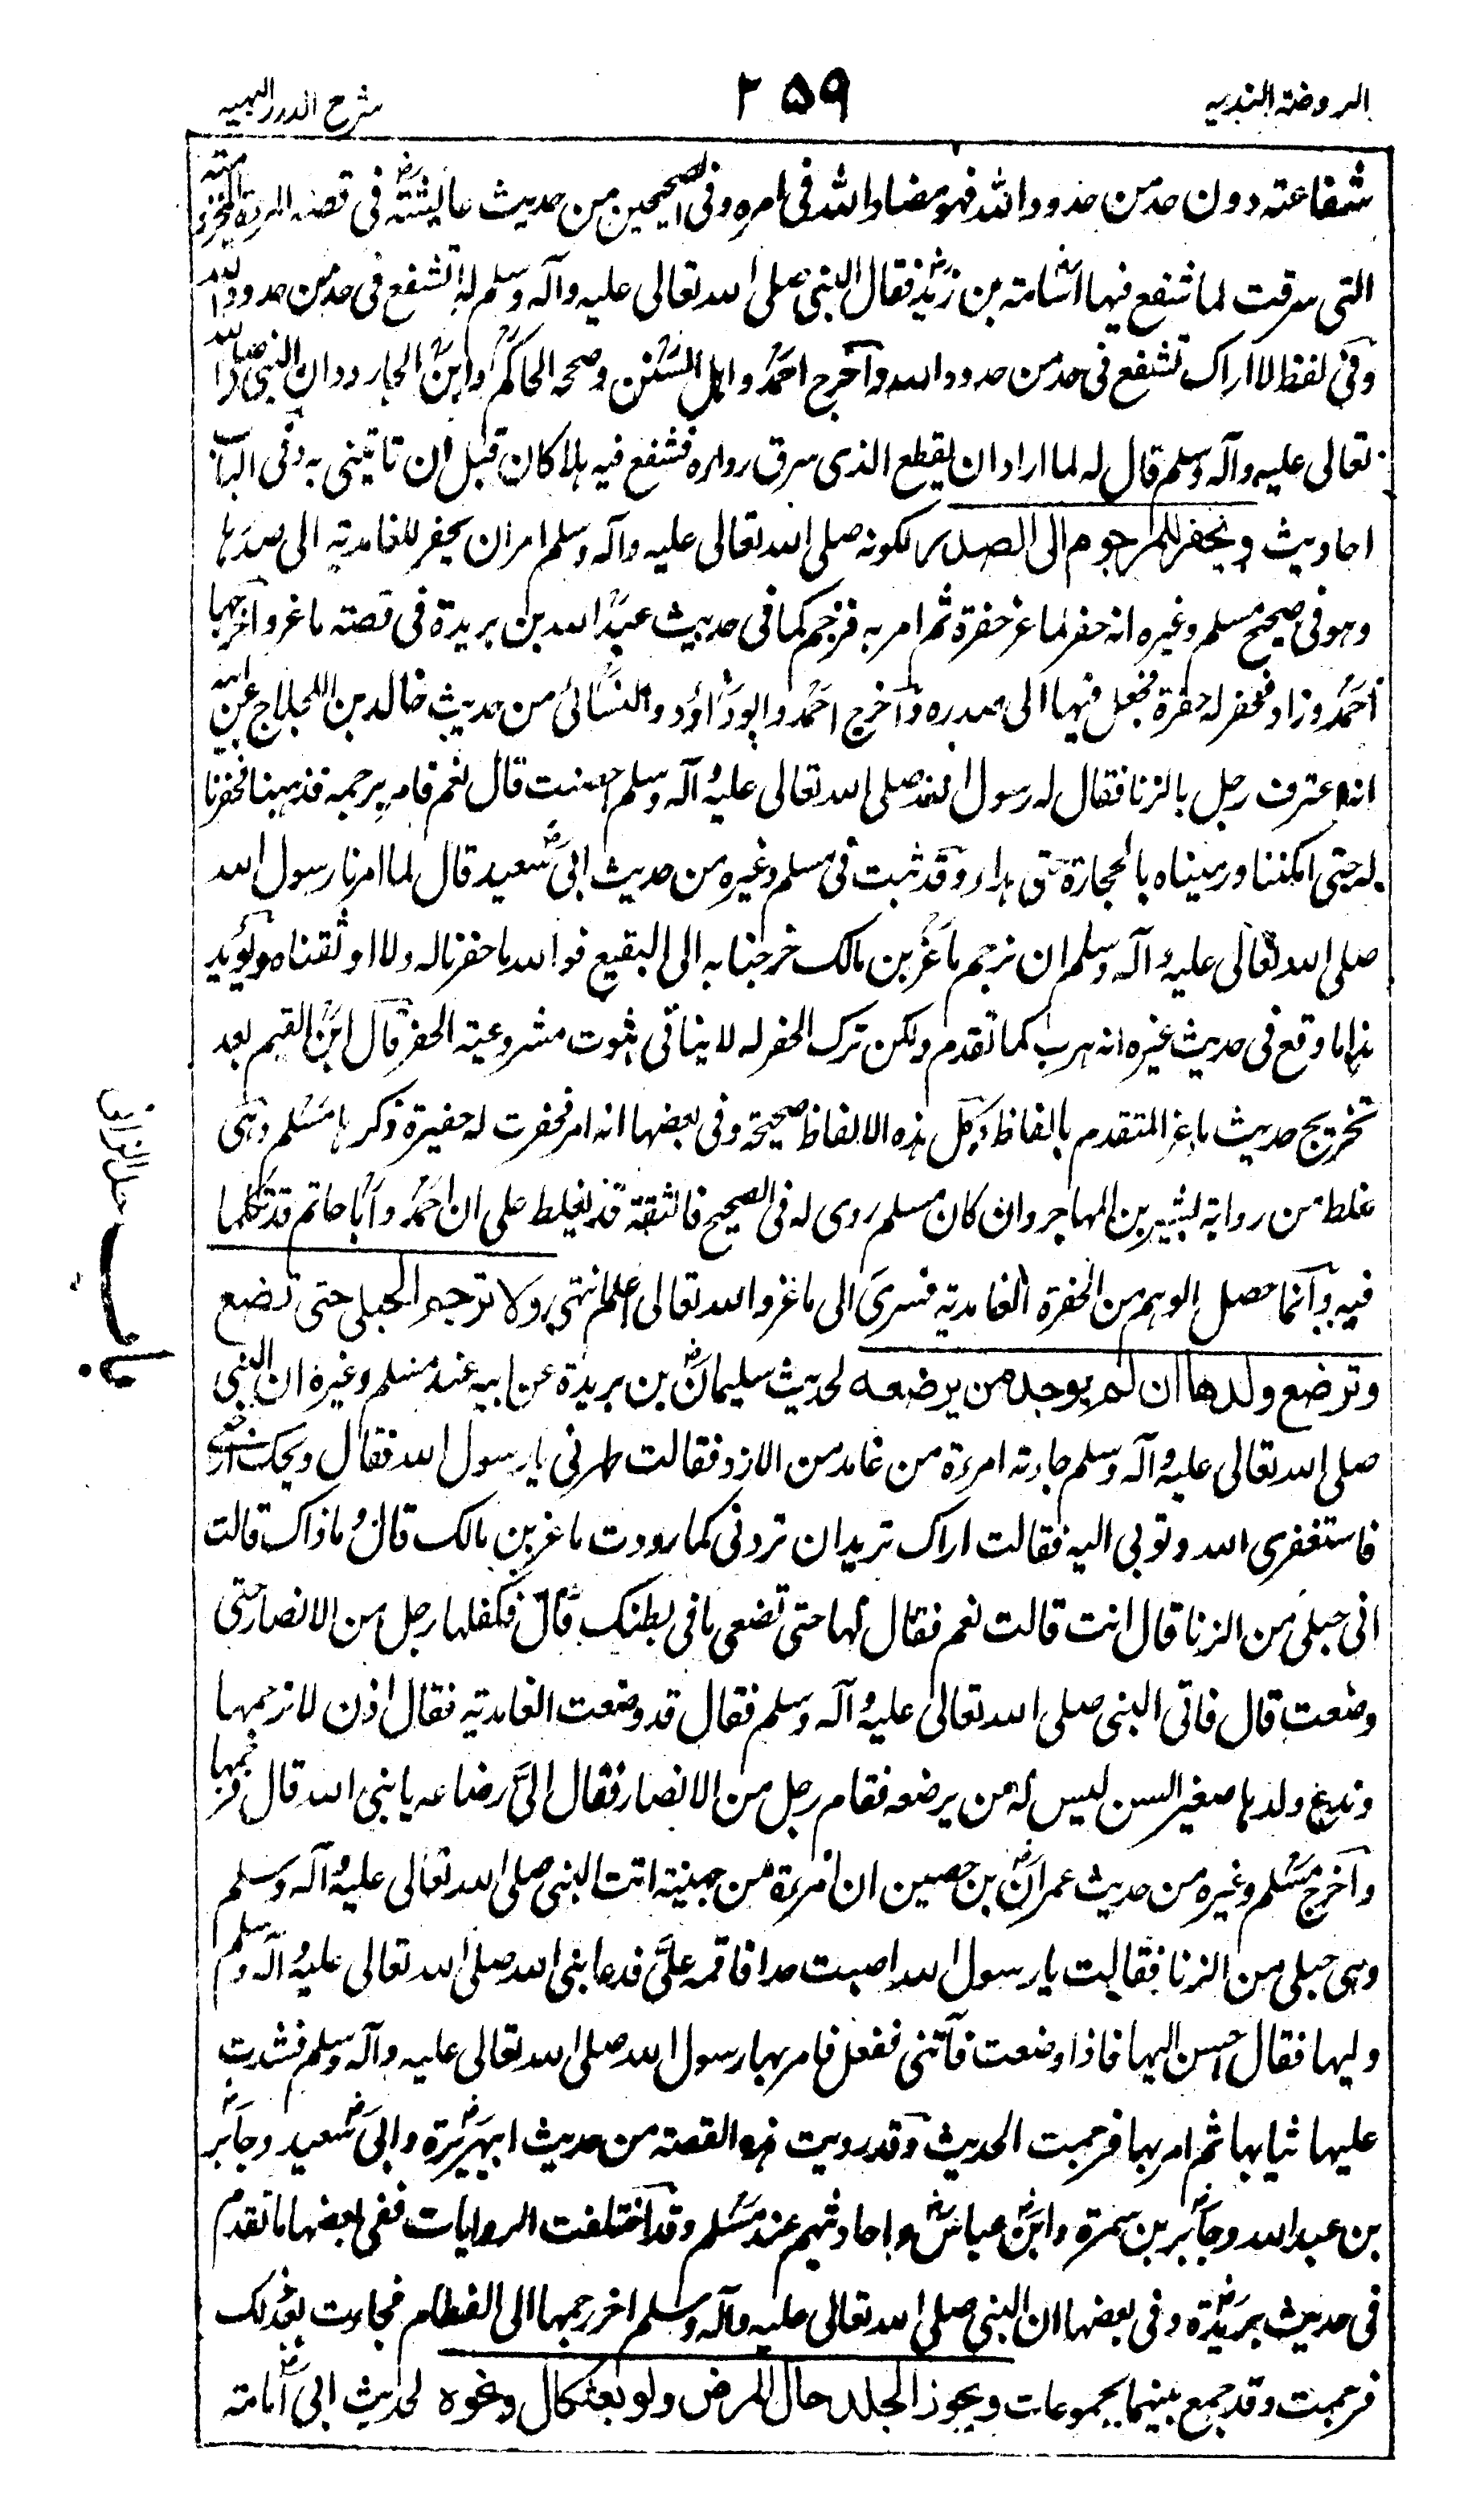 الروضة الندیه
۲۵۹
شرح الدرر البهیه
شفاعته دون حد من حدود الله فهو مضاد الله فی امره وفی الصحیحین من حدیث عایشة فی قصة المرءة المخزومیة
التی سرقت لما شفع فیها اسامة بن زید فقال النبی صلی الله تعالی علیه وآله وسلم له اتشفع فی حد من حدود الله
وفی لفظ لا اراک تشفع فی حد من حدود الله واخرج احمد واهل السنن وصححه الحاکم وابن الجارود ان النبی صلی الله
تعالی علیه وآله وسلم قال له لما اراد ان یقطع الذی سرق رداءه فشفع فیه هلا کان قبل ان تاتینی به وفی الباب
احادیث ویحفر للمرجوم الی الصدر لکونه صلی الله تعالی علیه وآله وسلم امر ان یحفر للغامدیة الی صدرها
وهو فی صحیح مسلم وغیره انه حفر لماعز حفرة ثم امر به فرجم کما فی حدیث عبد الله بن بریدة فی قصة ماعز واخرجها
احمد وزاد فحفر له حفرة فجعل فیها الی صدره واخرج احمد وابو داؤد والنسائی من حدیث خالد بن اللجلاج عن ابیه
انه اعترف رجل بالزنا فقال له رسول الله صلی الله تعالی علیه وآله وسلم احصنت قال نعم فامر برجمه فذهبنا فحفرنا
له حتی امکننا ورمیناه بالحجارة حتی هدأ وقد ثبت فی مسلم وغیره من حدیث ابی سعید قال لما امرنا رسول الله
صلی الله تعالی علیه وآله وسلم ان نرجم ماعز بن مالک خرجنا به الی البقیع فوالله ما حفرنا له ولا اوثقناه ویؤید
هذا ما وقع فی حدیث غیره انه هرب کما تقدم ولکن ترک الحفر له لا ینافی ثبوت مشروعیة الحفر قال ابن القیم بعد
تخریج حدیث ماعز المتقدم بالفاظ وکل هذه الالفاظ صحیحة وفی بعضها انه امر فحفرت له حفیرة ذکرها مسلم وهی
غلط من روایة بشیر بن المهاجر وان کان مسلم روی له فی الصحیح فالثقة قد یغلط علی ان احمد وابا حاتم قد تکلما
فیه وانما حصل الوهم من الحفرة الغامدیة فسری الی ماعز والله تعالی اعلم انتهی ولا ترجم الحبلی حتی تضع
وترضع ولدها ان لم یوجد من یرضعه لحدیث سلیمان بن بریدة عن ابیه عند مسلم وغیره ان النبی
صلی الله تعالی علیه وآله وسلم جاءته امرءة من غامد من الازد فقالت طهرنی یا رسول الله فقال ویحک ارجعی
فاستغفری الله وتوبی الیه فقالت اراک ترید ان تردنی کما رددت ماعز بن مالک قال وما ذاک قالت
انی حبلی من الزنا قال انت قالت نعم فقال لها حتی تضعی ما فی بطنک قال فکفلها رجل من الانصار حتی
وضعت قال فاتی النبی صلی الله تعالی علیه وآله وسلم فقال قد وضعت الغامدیة فقال اذن لا نرجمها
وندع ولدها صغیر السن لیس له من یرضعه فقام رجل من الانصار فقال الیّ رضاعه یا نبی الله قال فرجمها
واخرج مسلم وغیره من حدیث عمران بن حصین ان امرءة من جهینة اتت النبی صلی الله تعالی علیه وآله وسلم
وهی حبلی من الزنا فقالت یا رسول الله اصبت حدا فاقمه علیّ فدعا نبی الله صلی الله تعالی علیه وآله وسلم
ولیها فقال احسن الیها فاذا وضعت فأتنی ففعل فامر بها رسول الله صلی الله تعالی علیه وآله وسلم فشدت
علیها ثیابها ثم امر بها فرجمت الحدیث وقد رویت هذه القصة من حدیث ابی هریرة وابی سعید وجابر
بن عبد الله وجابر بن سمرة وابن عباس واحادیثهم عند مسلم وقد اختلفت الروایات ففی بعضها ما تقدم
فی حدیث بریدة وفی بعضها ان النبی صلی الله تعالی علیه وآله وسلم اخر رجمها الی الفطام فجاءت بعد ذلک
فرجمت وقد جمع بینهما بجموعات ویجوز الجلد حال المرض ولو بعثکال ونحوه لحدیث ابی امامة
باب حد الزانی